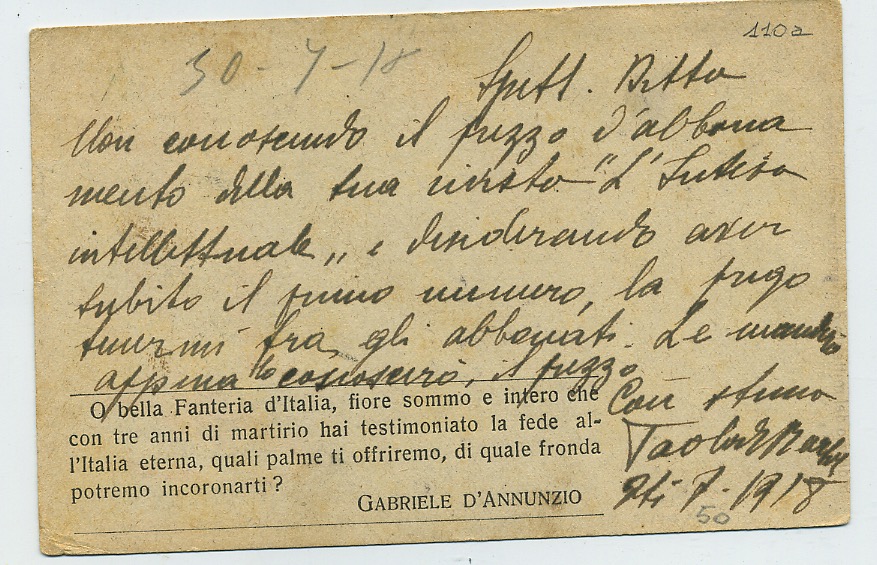 110a
30-7-18
Spett. Ditta
Non conoscendo il prezzo d'abbona
mento della sua rivista "L'Intesa
intellettuale" e desiderando aver
subito il primo numero, la prego
tenermi fra gli abbonati. Le manderò
appena lo conoscerò, il prezzo.
Con stima
O bella Fanteria d'Italia, fiore sommo e intero che
con tre anni di martirio hai testimoniato la fede al-
l'Italia eterna, quali palme ti offriremo, di quale fronda
potremo incoronarti ?
GABRIELE D'ANNUNZIO
7-1918
50